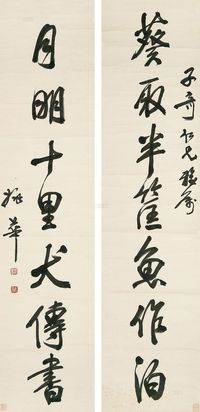 子奇仁兄雅屬
葵取半筐魚作泊
月明十里犬傳書
姚華